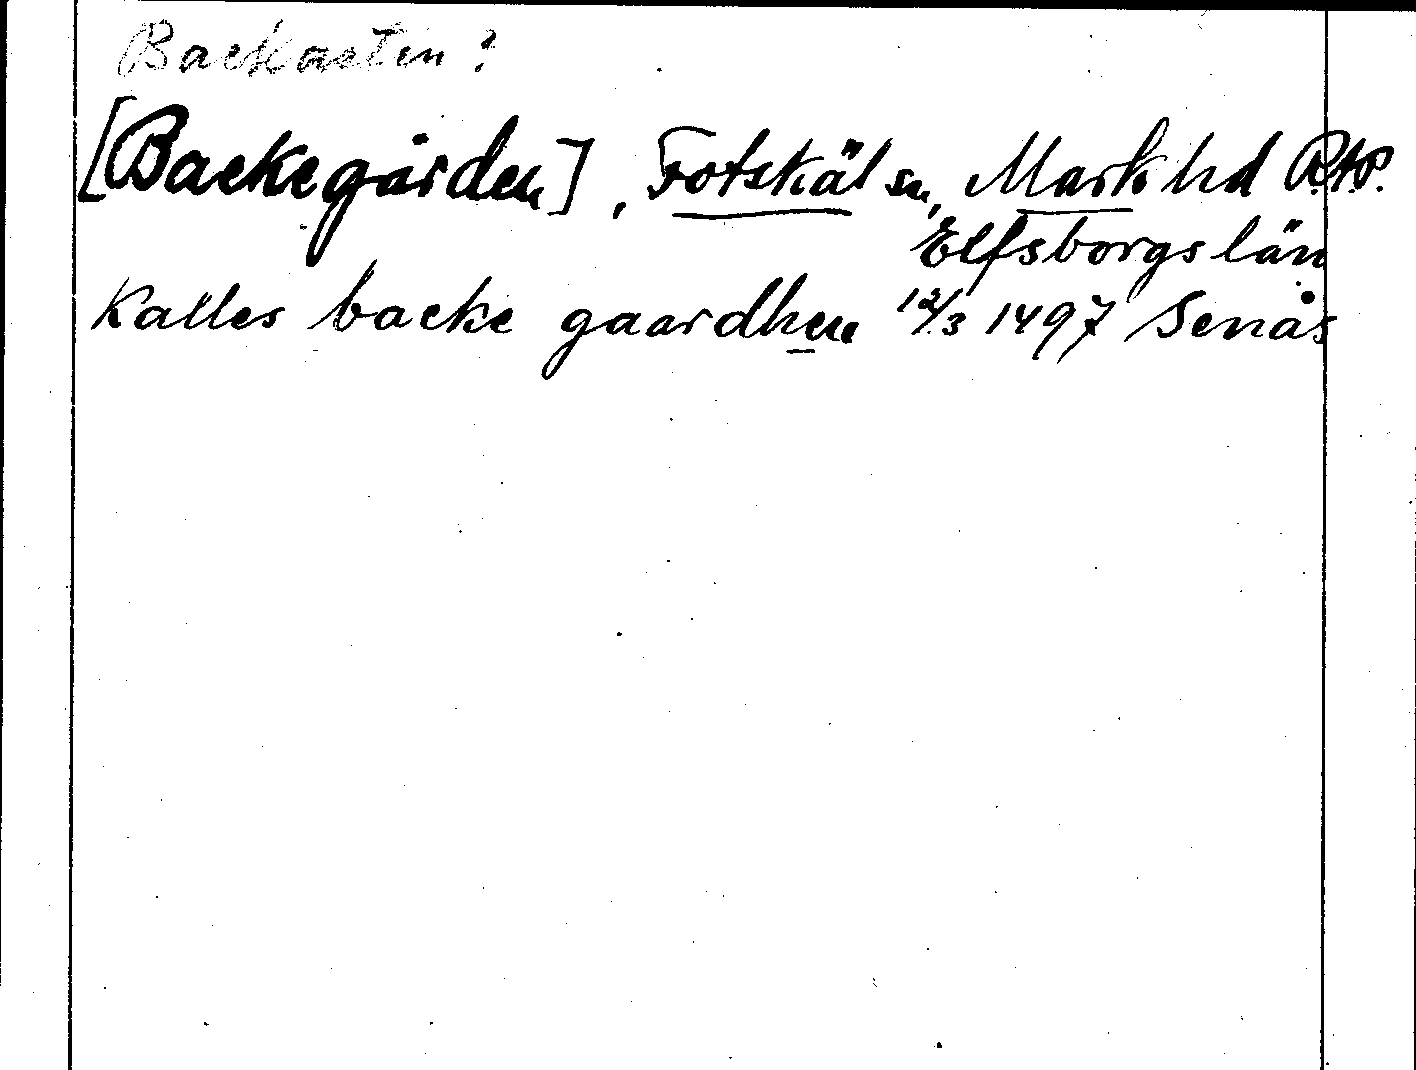 Backaeten?
[Backegården], Fotskäl sn, Mark hd R.A.P.
Elfsborgs län
Kalles backe gaardhen 12/3 1497 Senäs